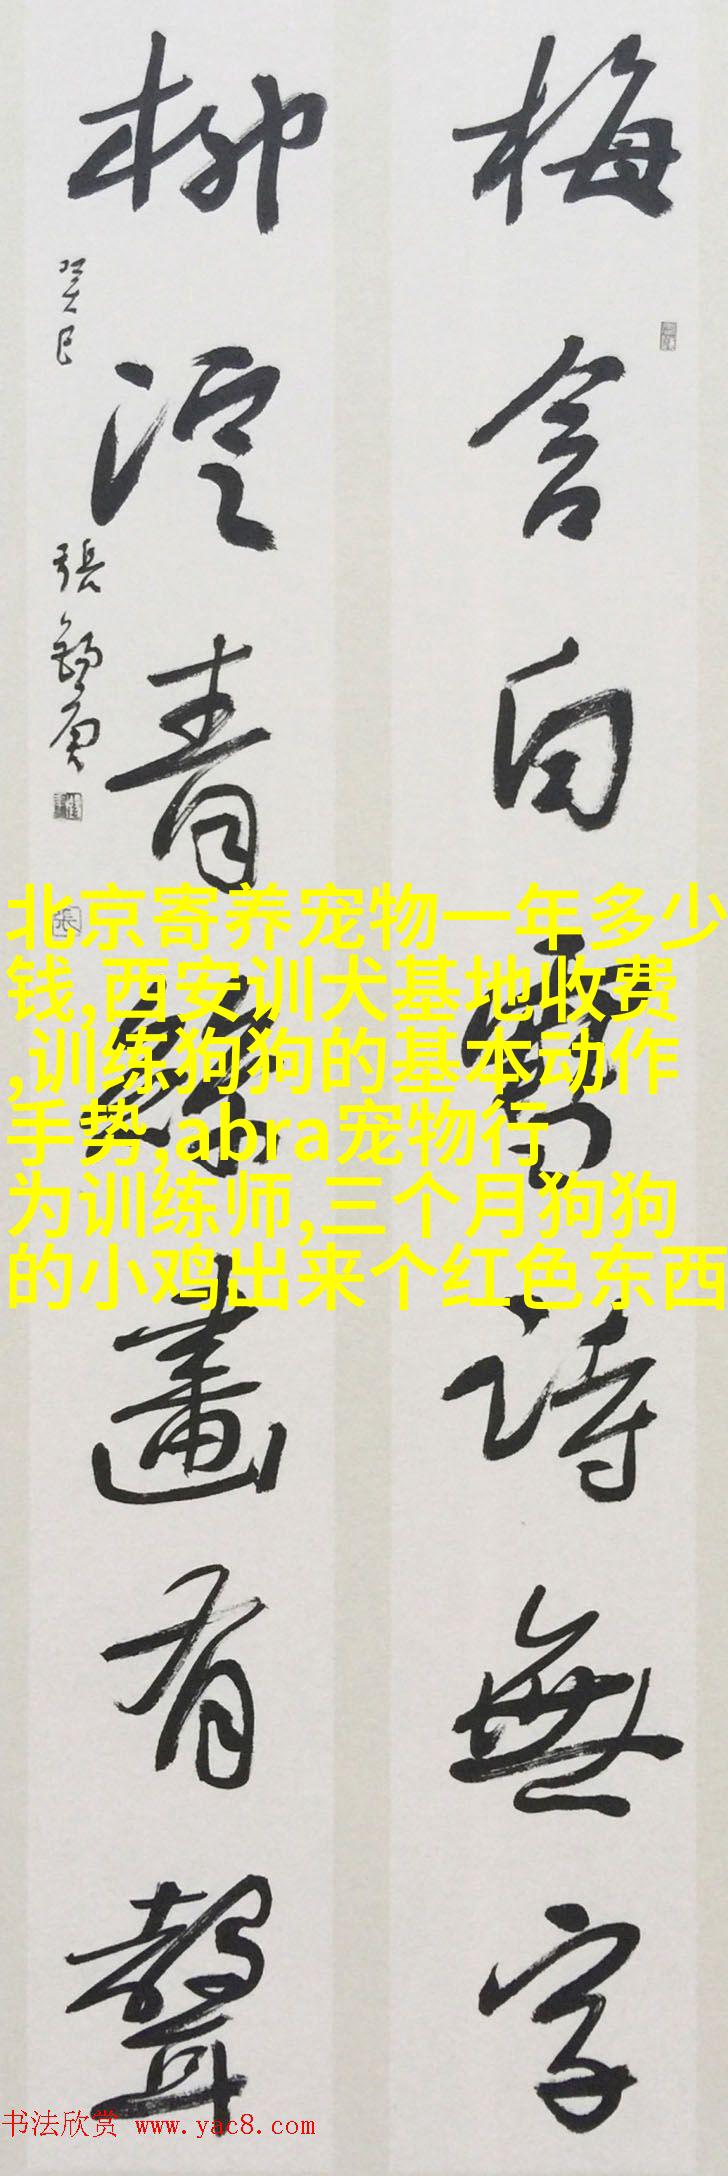 梅含白雪詩無字
柳淀青絲畫有聲
癸巳
張
北京寄养宠物一年多少
钱,西安训犬基地收费
,训练狗狗的基本动作
手势,abra宠物行
为训练师,三个月狗狗
的小鸡出来个红色东西
书法欣赏 www.yac8.com